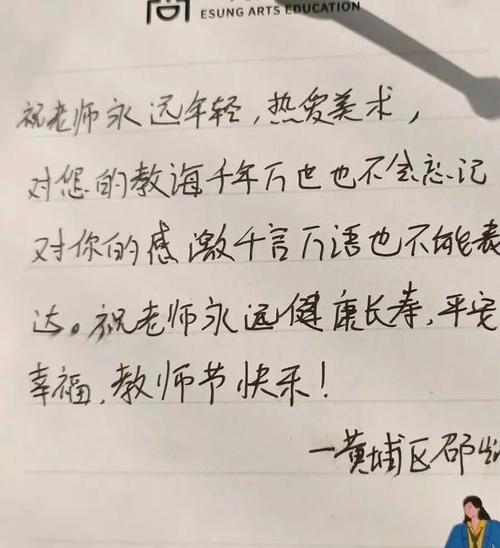 ESUNG ARTS EDUCATION
祝老师永远年轻，热爱美术，
对您的教诲千年万世也不会忘记
对你的感激千言万语也不能表
达。祝老师永远健康长寿，平安
幸福，教师节快乐！
一黄埔区邵